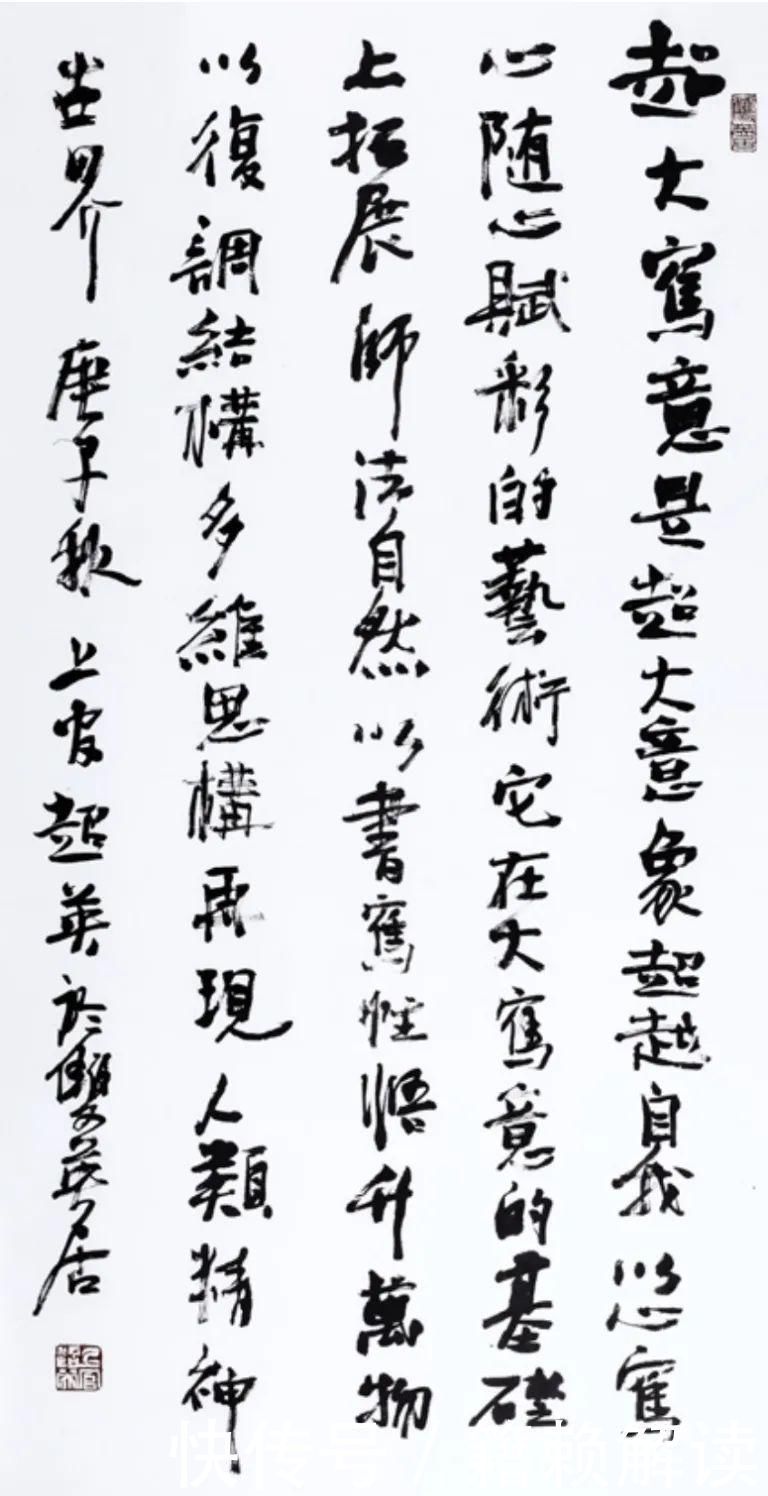 超大寫意是超大意象超越自我以心寫
心随心賦彩的藝術它在大寫意的基礎
上拓展師法自然以書寫性悟升萬物
以復調結構多維思構再現人類精神
世界 庚子秋上官超英於雙英居
上官超英
快传号/籍赖解读